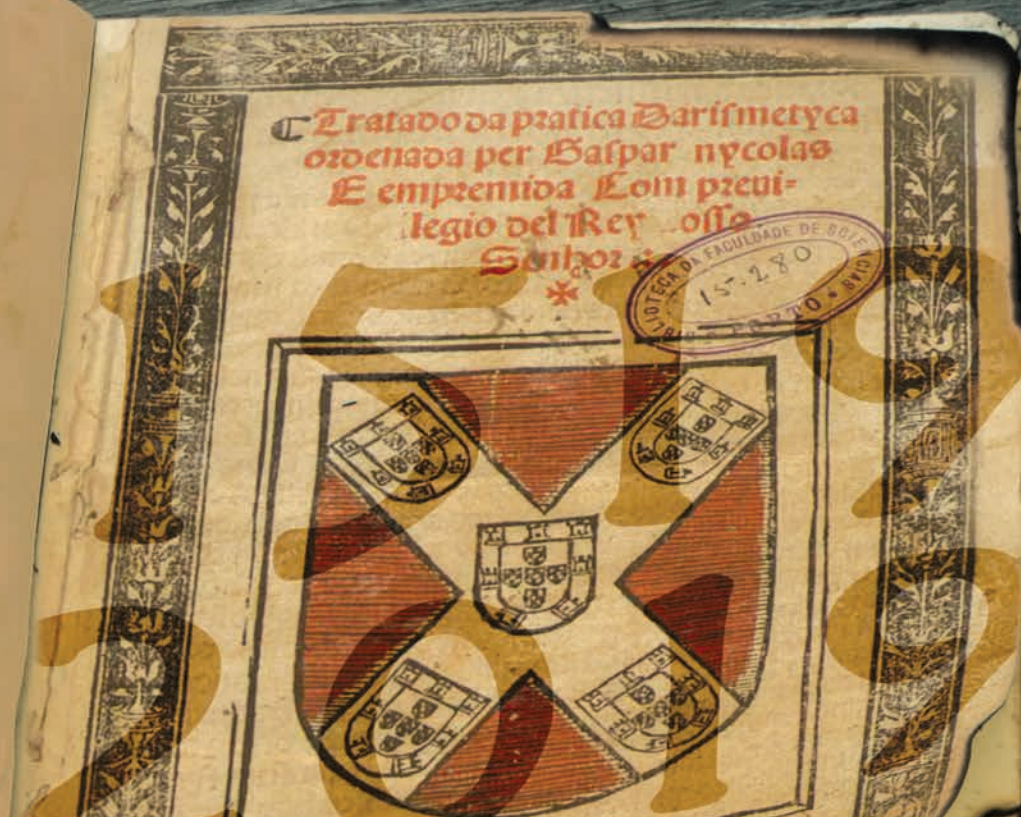 Tratado da pratica Darismetyca
ordenada per Gaspar nycolas
E empremida Com previ=
legio del Rey
Senhor
BIBLIOTECA DA FACULDADE DE
PORTO
15-280
1519
2019